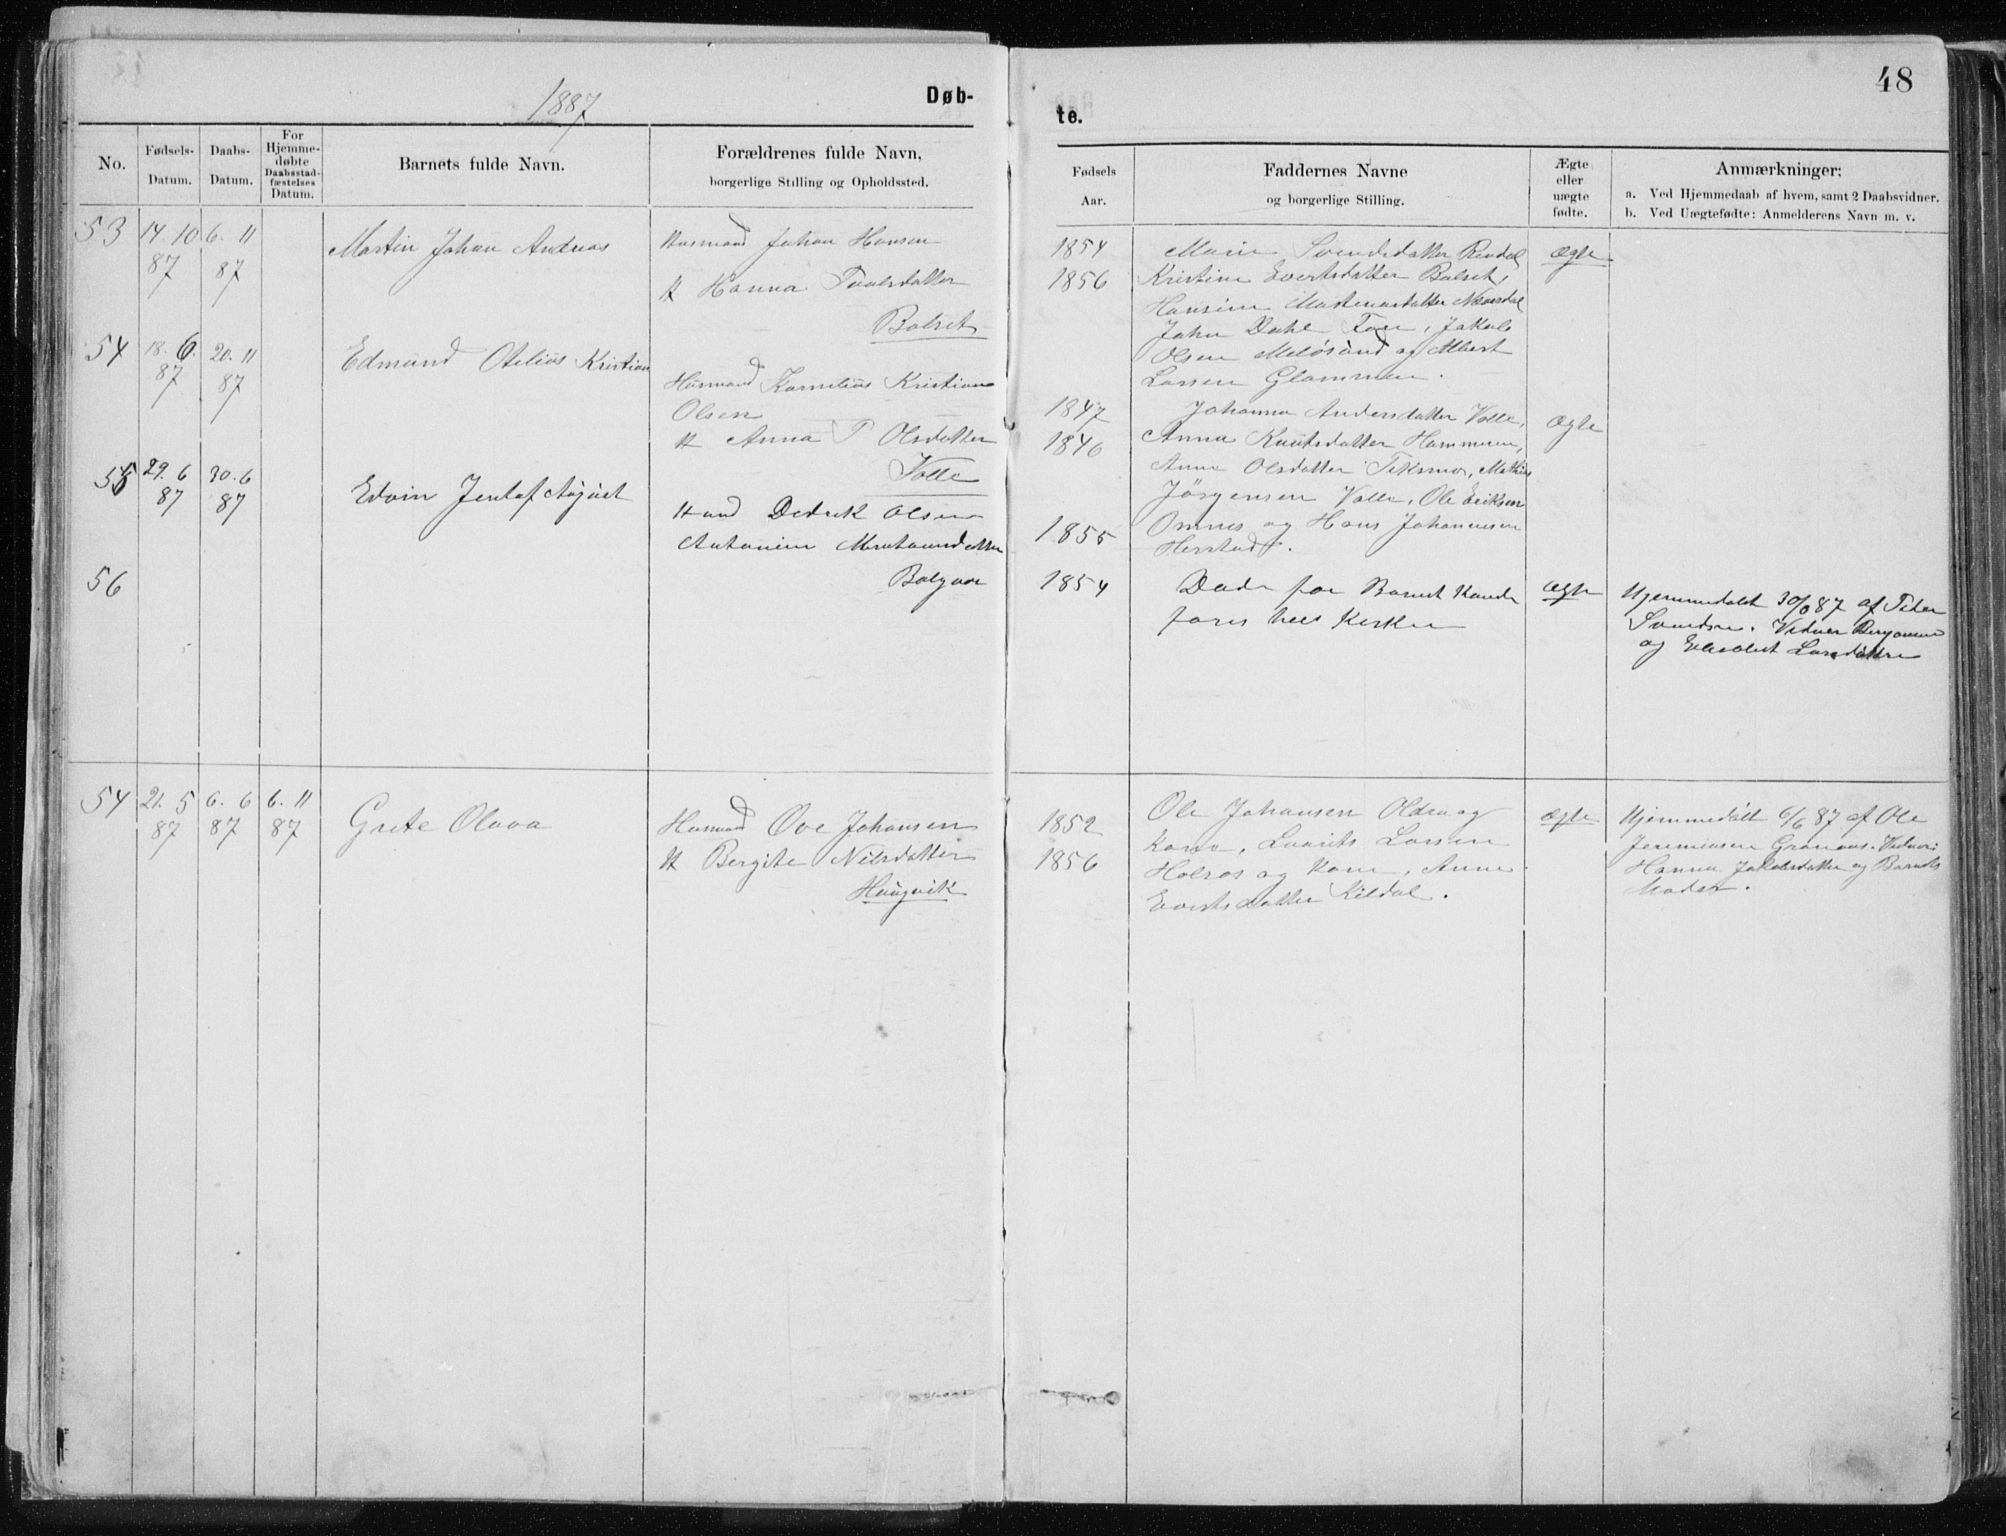 1887
Døb-
No.
Fødsels-
Datum.
Daabs-
Datum.
For
Hjemme-
døbte
Daabsstad-
fæstelses
Datum.
Barnets fulde Navn.
Forældrenes fulde Navn,
borgerlige Stilling og Opholdssted.
53 14 10 6. 11
87 87
Martin Johan Andreas
Husmand Johan Hansen
H Hanna
Bolset
54 18. 6. 20. 11
87 87
Edmund Otelius Kristian
Husmand Kornelius Kristian
Olsen
H Anna P Olsdatter
Valle
55 29. 6 30. 6
87 87
Edvin August
Didrik Olsen
Antonine
56
54 21. 5 6. 6 6. 11
87 87 87
Grete Olava
Husmand Ove Johansen
H Bergite Nilsdatter
Haugvik
48
te.
Fødsels
Aar.
Faddernes Navne
og borgerlige Stilling.
Ægte
eller
uægte
fødte.
Anmærkninger:
a. Ved Hjemmedaab af hvem, samt 2 Daabsvidner.
b. Ved Uægtefødte: Anmelderens Navn m. v.
1854
1856
Marie Svendsdatter Rendal
Kristine Evertsdatter Bolset,
John Dahl Jakob
Olsen Meløsund og Albert
Larsen Glommen.
Ægte
1847
1846
Johanna Andersdatter Valle,
Anna Knutsdatter Hammeren,
Anna Olsdatter Teksmo, Mathias
Jörgensen Valle, Ole Eriksen
Omnes og Hans Johannesen
Herstad.
Ægte
1855
1854
Døde før Barnet kunde
føres til Kirken
Ægte
Hjemmedøbt 30/6 87 af Peder
Svendsen. Vidner
og Elisabet Larsdatter
1852
1856
Ole Johansen Oldra og
kone, Laurits Larsen
og kone, Anne
Evertsdatter Kildal.
Ægte
Hjemmedöbt 6/6 87 af Ole
Jeremiasen Vidner:
Hanna Jakobsdatter og Barnets
Moder.